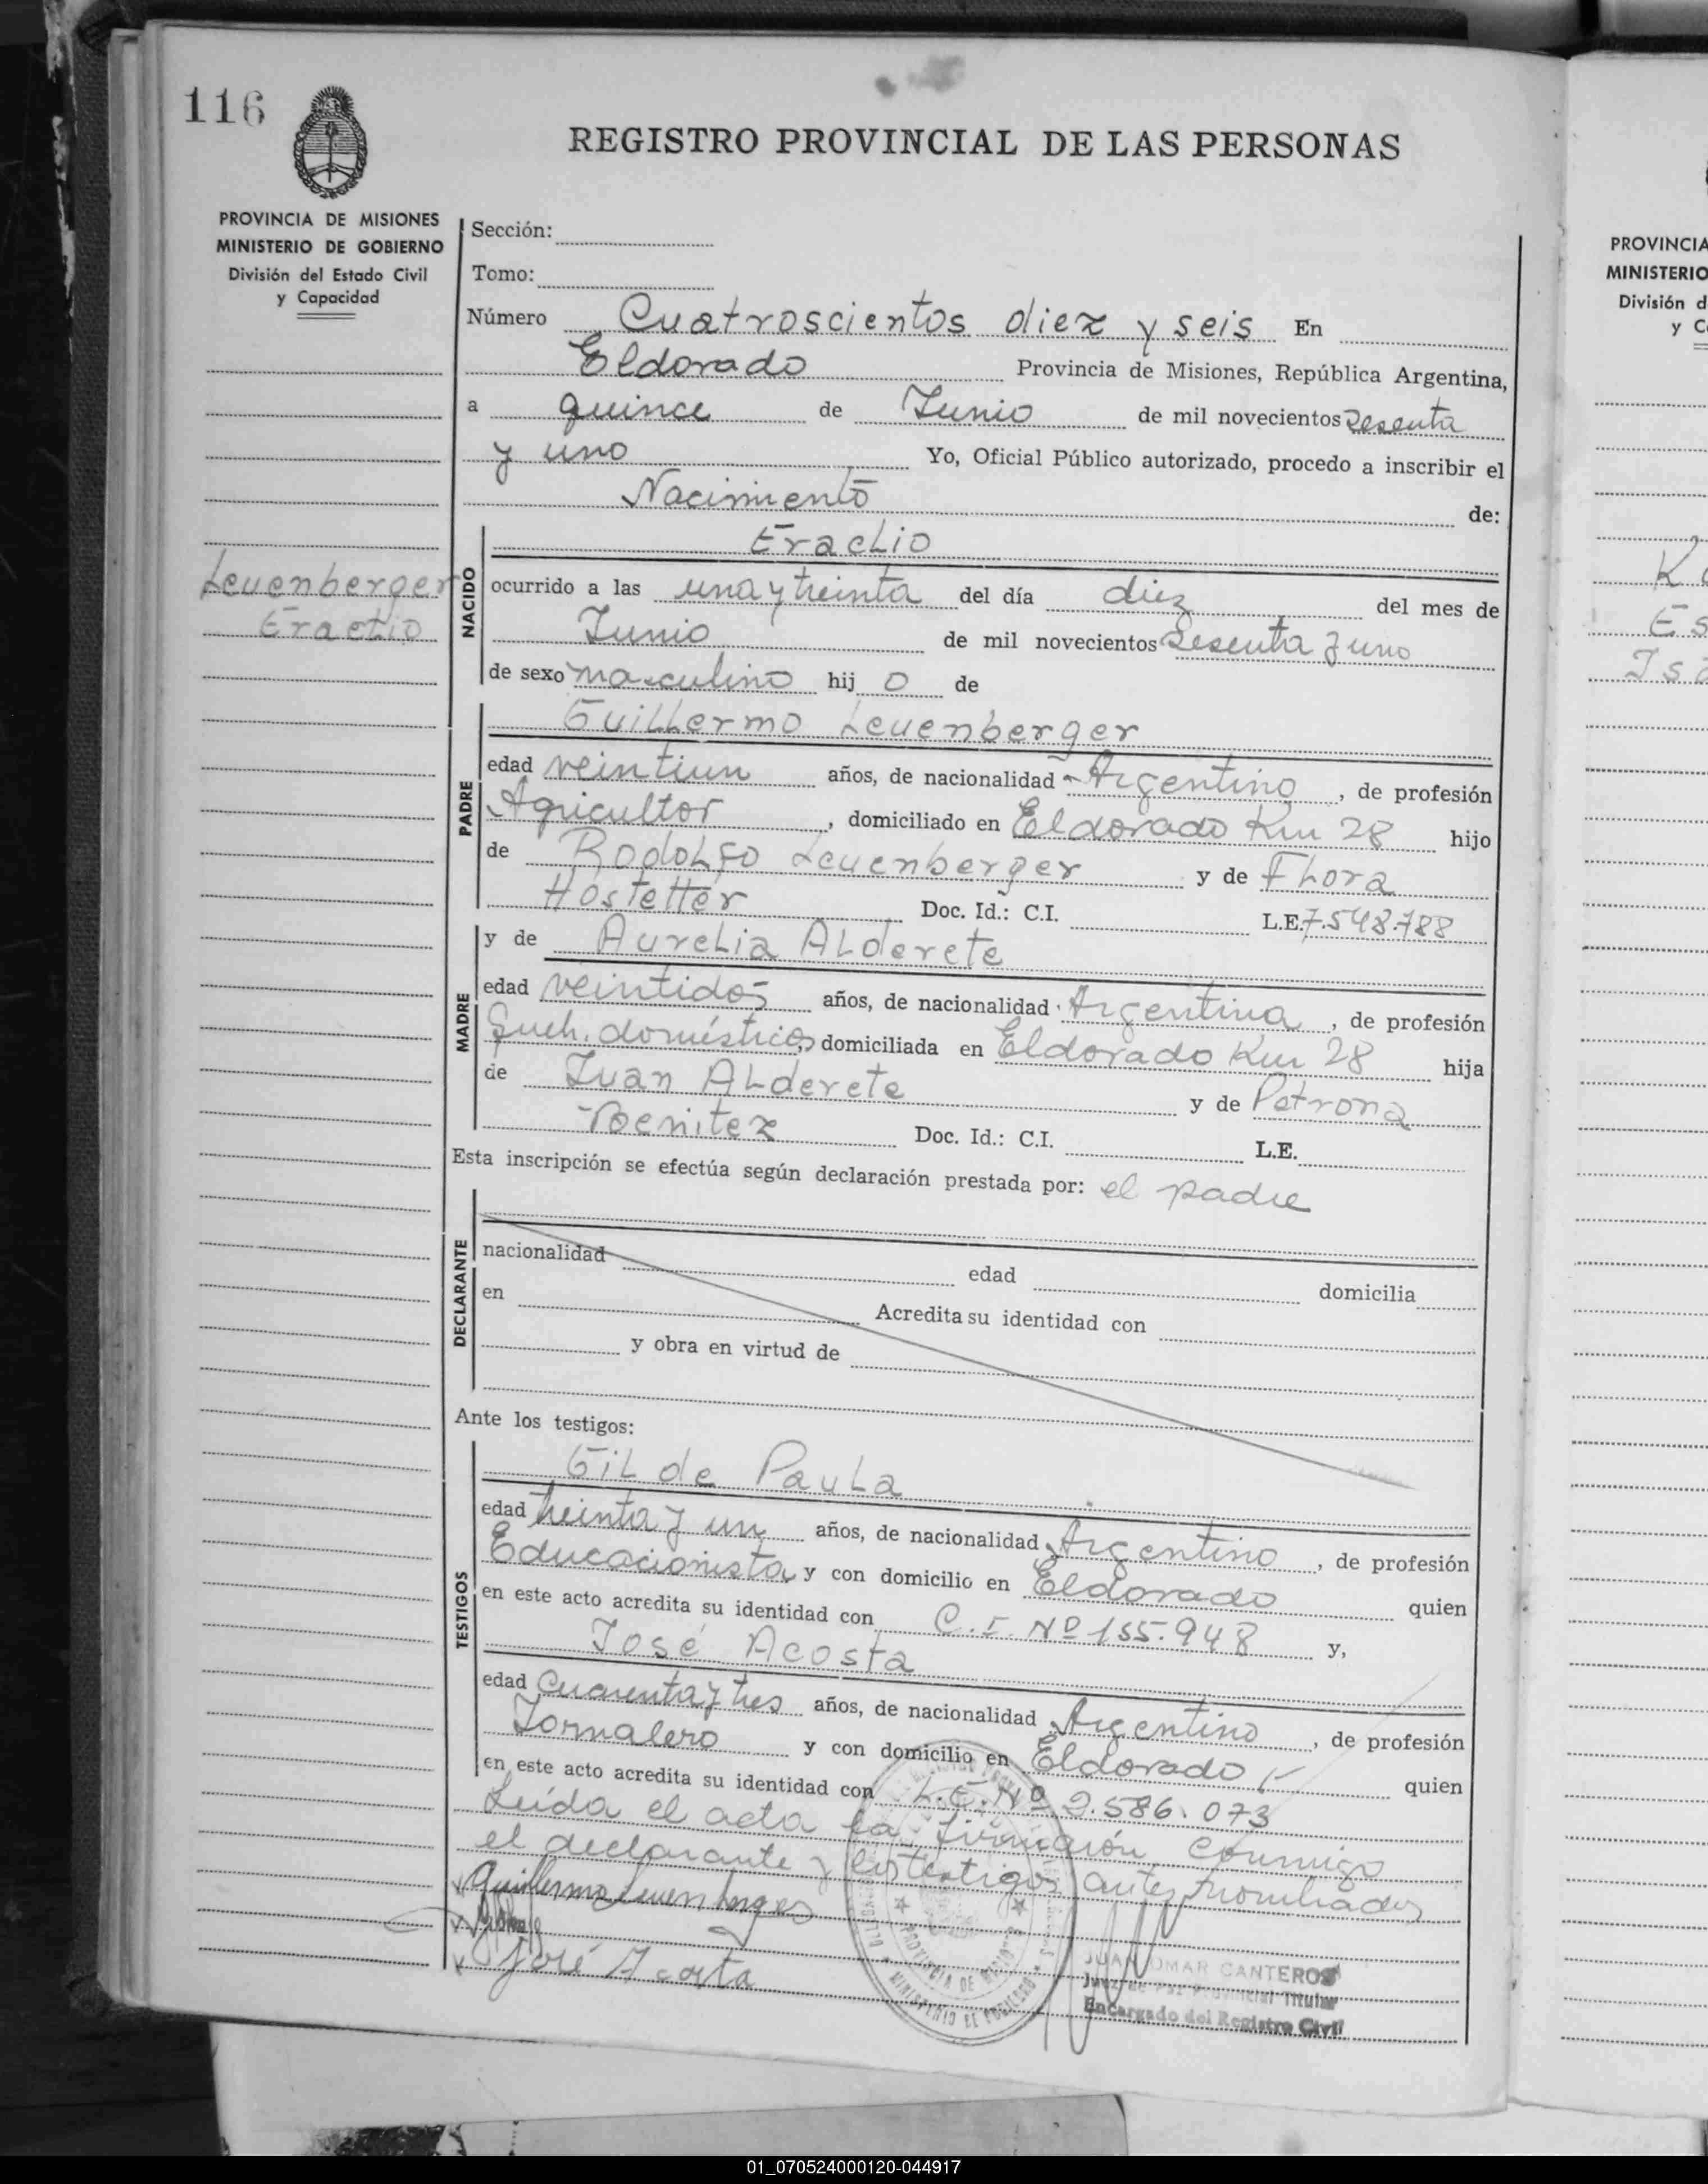 116
REGISTRO PROVINCIAL DE LAS PERSONAS
PROVINCIA DE MISIONES
MINISTERIO DE GOBIERNO
División del Estado Civil
y Capacidad
Sección:
Tomo:
Número Cuatroscientos diez y seis En
Eldorado Provincia de Misiones, República Argentina,
a quince de Junio de mil novecientos sesenta
y uno Yo, Oficial Público autorizado, procedo a inscribir el
Nacimiento de:
Leuenberger
Eraclio
NACIDO
Eraclio
ocurrido a las una y treinta del día diez del mes de
Junio de mil novecientos sesenta y uno
de sexo masculino hij o de
PADRE
Guillermo Leuenberger
edad veintiun años, de nacionalidad Argentino, de profesión
Agricultor, domiciliado en Eldorado Km 28 hijo
de Rodolfo Leuenberger y de Flora
Hostetter Doc. Id.: C.I. L.E. 7.548.788
MADRE
y de Aurelia Alderete
edad veintidos años, de nacionalidad Argentina, de profesión
Queh. domésticos domiciliada en Eldorado Km 28 hija
de Juan Alderete y de Petrona
Benitez Doc. Id.: C.I. L.E.
Esta inscripción se efectúa según declaración prestada por: el padre
DECLARANTE
nacionalidad edad domicilia
en Acredita su identidad con
y obra en virtud de
Ante los testigos:
TESTIGOS
Gil de Paula
edad treinta y un años, de nacionalidad Argentino, de profesión
Educacionista y con domicilio en Eldorado quien
en este acto acredita su identidad con C.I. Nº 155.948 y,
José Acosta
edad Cuarenta y tres años, de nacionalidad Argentino, de profesión
Jornalero y con domicilio en Eldorado quien
en este acto acredita su identidad con L.E. Nº 2.586.073
Leída el acta la firmarón conmigo
el declarante y los testigos antes nombrados
Guillermo Leuenberger
José Acosta
PROVINCIA DE MISIONES
MINISTERIO DE GOBIERNO
JUAN OMAR CANTEROS
Juez de Paz Provincial Titular
Encargado del Registro Civil
PROVINCIA
MINISTERIO
División d
y C
K
Es
Isa
01_070524000120-044917